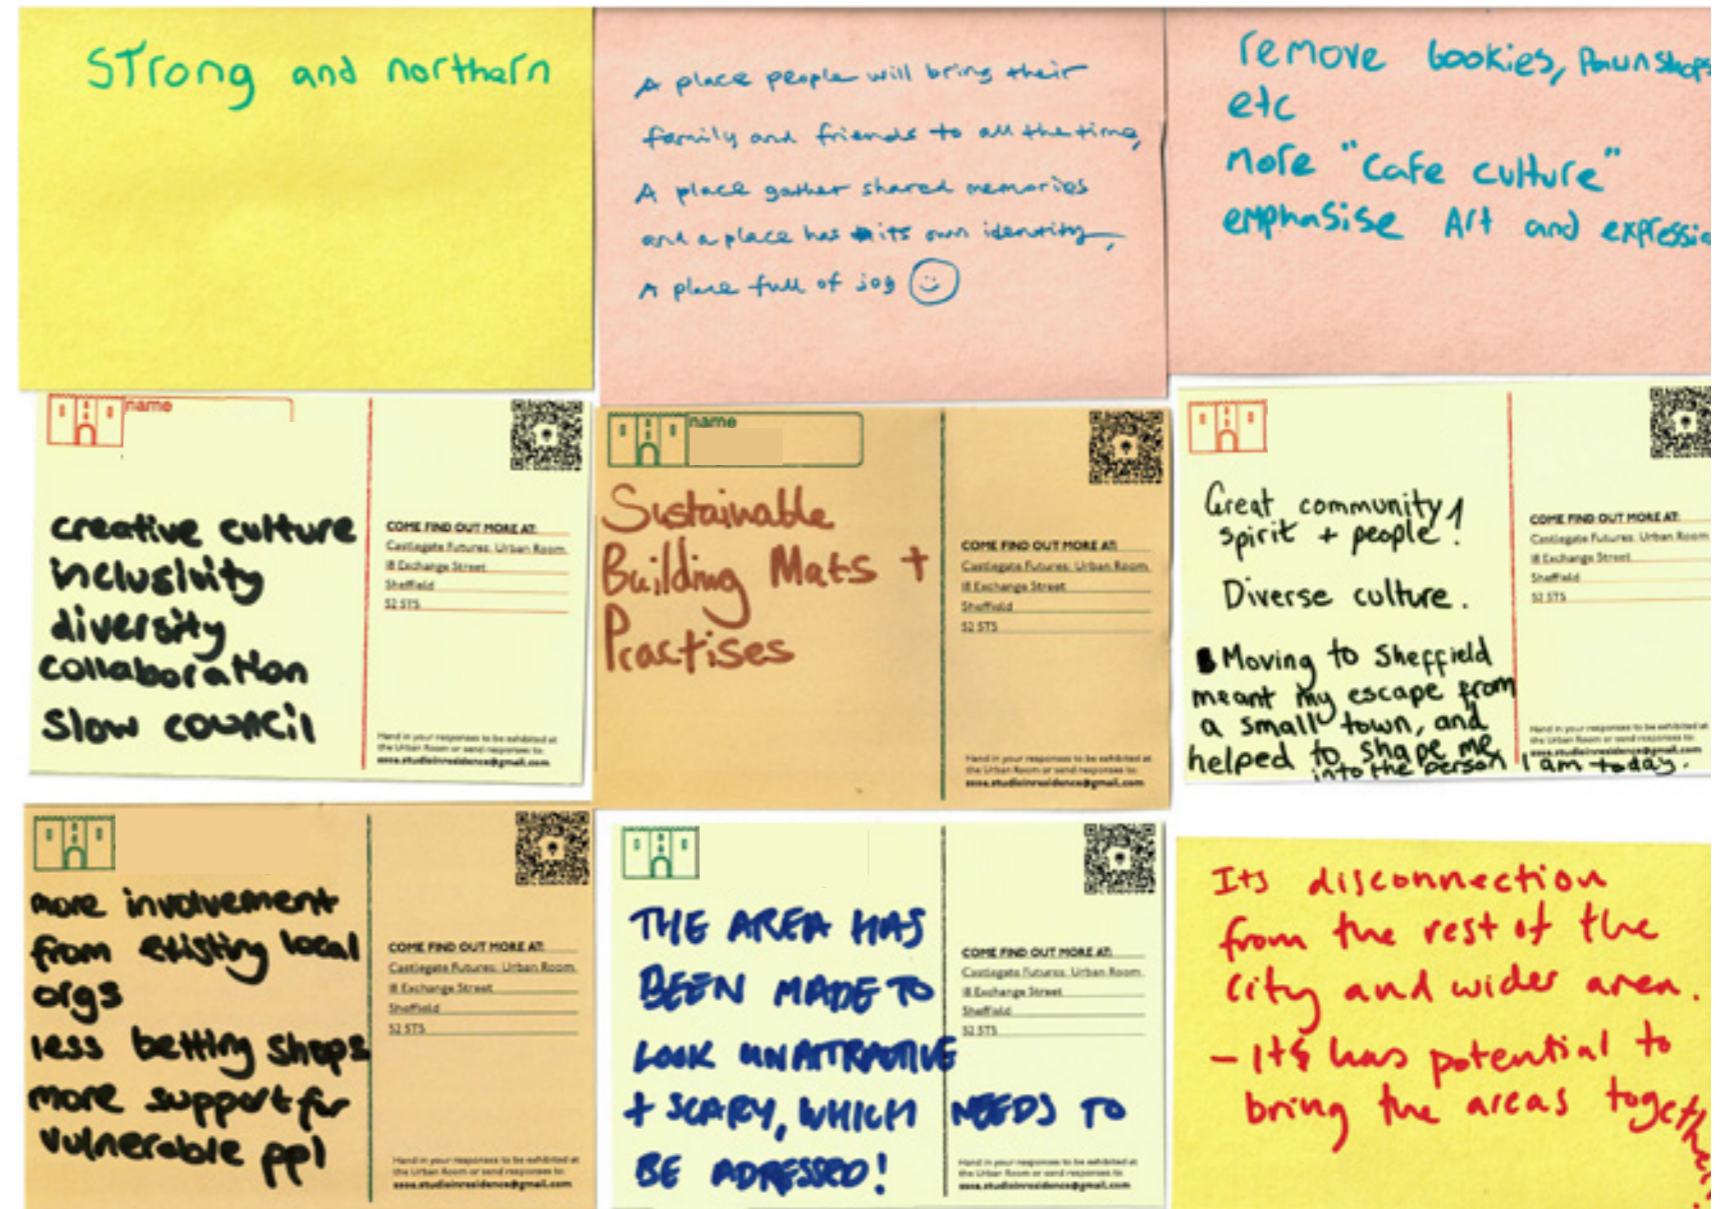 STrong and northern
A place people will bring their
family and friends to all the time,
A place gather shared memories
and a place has its own identity,
A place full of joy
remove bookies, Pawnshops
etc
more "cafe culture"
emphasise Art and expressio
name
creative culture
inclusivity
diversity
collaboration
slow council
COME FIND OUT MORE AT:
Castlegate Futures: Urban Room
18 Exchange Street
Sheffield
S2 5TS
Hand in your responses to be exhibited at
the Urban Room or send responses to:
ssoa.studioinresidence@gmail.com
name
Sustainable
Building Mats +
Practises
COME FIND OUT MORE AT:
Castlegate Futures: Urban Room
18 Exchange Street
Sheffield
S2 5TS
Hand in your responses to be exhibited at
the Urban Room or send responses to:
ssoa.studioinresidence@gmail.com
Great community
spirit + people!
Diverse culture.
Moving to Sheffield
meant my escape from
a small town, and
helped to shape me
into the person I am today.
COME FIND OUT MORE AT:
Castlegate Futures: Urban Room
18 Exchange Street
Sheffield
S2 5TS
Hand in your responses to be exhibited at
the Urban Room or send responses to:
ssoa.studioinresidence@gmail.com
more involvement
from existing local
orgs
less betting shops
more support for
vulnerable ppl
COME FIND OUT MORE AT:
Castlegate Futures: Urban Room
18 Exchange Street
Sheffield
S2 5TS
Hand in your responses to be exhibited at
the Urban Room or send responses to:
ssoa.studioinresidence@gmail.com
THE AREA HAS
BEEN MADE TO
LOOK UNATTRACTIVE
+ SCARY, WHICH NEEDS TO
BE ADRESSED!
COME FIND OUT MORE AT:
Castlegate Futures: Urban Room
18 Exchange Street
Sheffield
S2 5TS
Hand in your responses to be exhibited at
the Urban Room or send responses to:
ssoa.studioinresidence@gmail.com
Its disconnection
from the rest of the
city and wider area.
- Its has potential to
bring the areas together?